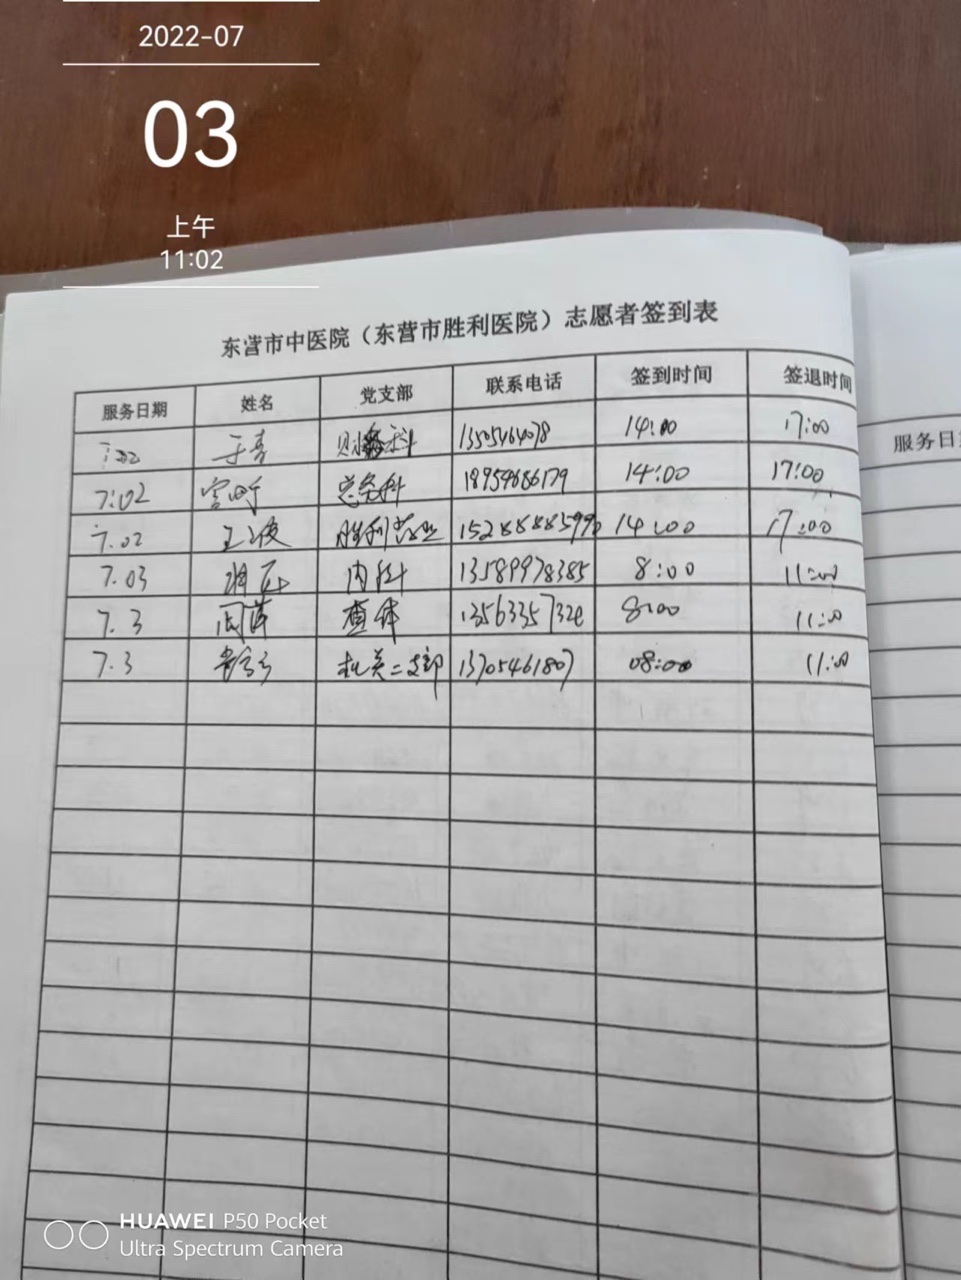 2022-07
03
上午
11:02
东营市中医院（东营市胜利医院）志愿者签到表
服务日期 姓名 党支部 联系电话 签到时间 签退时间
于青 财务科 14:00 17:00
7:02 总务科 18954686179 14:00 17:00
7.02 王俊 胜利 14:00 17:00
7.03 内科 13589978385 8:00 11:00
7.3 周萍 查体 8:00 11:00
7.3 机关二支部 13705461807 08:00 11:00
服务日
HUAWEI P50 Pocket
Ultra Spectrum Camera